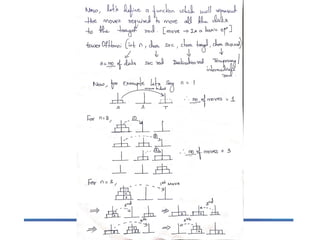 Now, let's define a function which will represent
the moves required to move all the disks
to the target rod [move → is a basic op"]
towerOfHanoi (int n, char src, char target, char
n = no of disks src rod Destination Temporary/
intermediate
rod
Now, for example lets say n = 1
S I T ∴ no of moves = 1
For n=2,
∴ no of moves = 3
For n = 3,
1st Move